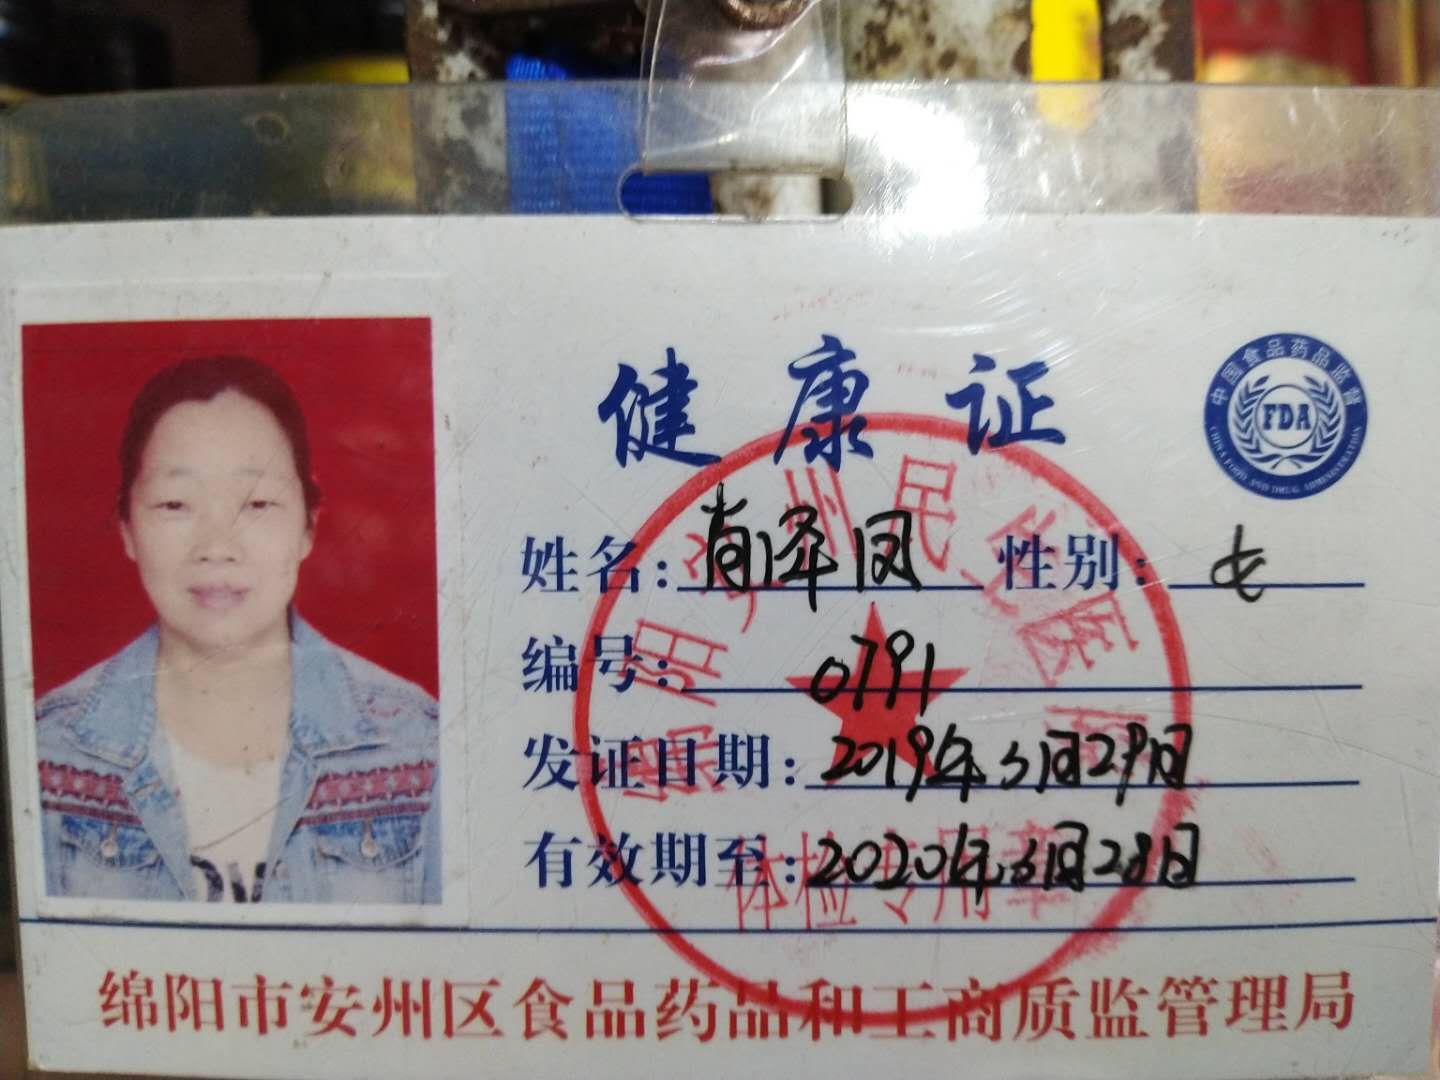 健康证
中国食品药品监督
FDA
CHINA FOOD AND DRUG ADMINISTRATION
姓名: 肖泽凤 性别: 女
编号: 0791
发证日期: 2019年3月29日
有效期至: 2020年3月28日
绵阳安州民 医院
体检专用章
绵阳市安州区食品药品和工商质监管理局